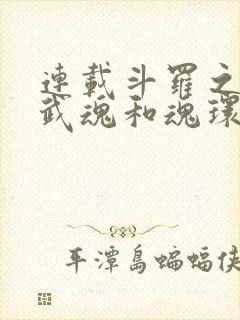 連載斗羅之
武魂和魂環
平潭島蝙蝠俠